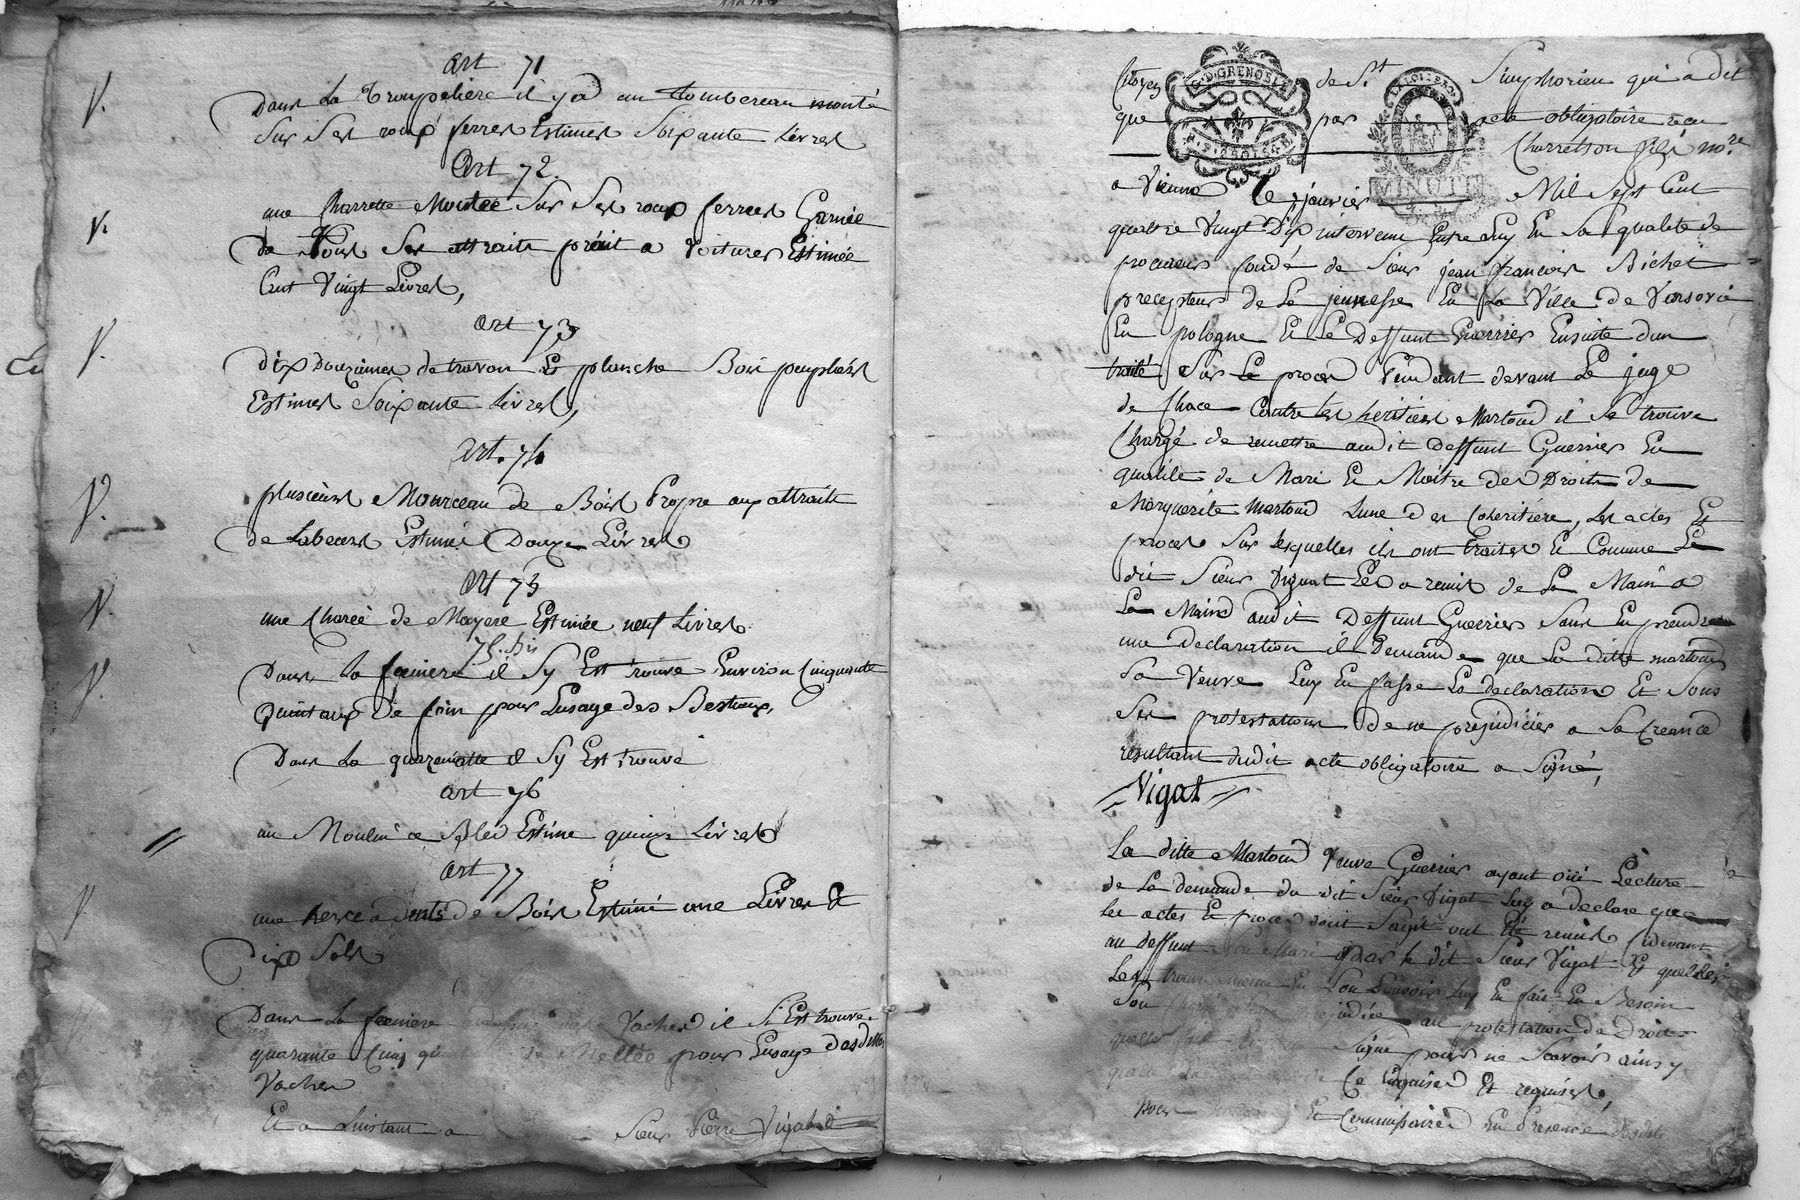 art 71
Dans La Troupeliere il y a un tombereau monté
Sur Ses roux ferres Estimes Soixante Livres
art 72.
une Charrette Montée Sur Ses roux ferres Garnie
De tous Ses attraits prêt a voitures Estimée
Cent Vingt Livres,
art 73
dix Douzaines de travon Et planche Bois peupliers
Estimes Soixante Livres,
art. 74
plusieurs Mourceau de Bois Propre aux attraits
de Labeurs Estimé Douze Livres
art 75
une Charée de Mayere Estimée neuf Livres
75. bis
Dans la feniere il Sy Est trouvé Environ Cinquante
quintaux De foin pour Lusage des Bestiaux,
Dans La il Sy Est trouvé
art 76
un Moulin a Bled Estime quinze Livres
art 77
une herce a dents de Bois Estimé une Livres Et
Dix Sols
Dans La feniere Vaches il Si Est trouve
quarante Cinq de Mellée pour Lusage desdittes
Vaches
Et a Linstant a Sieur Pierre Vigat
Citoyen de St. Simphorien qui a dit
G. D. GRENOBLE
LA LOI LE ROI
que par acte obligatoire recu
Charreton fils nore
MINUTE
a Vienne Le janvier Mil Sept Cent
quattre Vingt Dix intervenu Entre Luy En Sa qualité de
procureur fondé de Sieur jean françois Bichet
precepteur de La jeunesse En La Ville de Varsovie
En pologne Et Le Deffunt Guerrier Ensuite dun
traité Sur Le proces Pendant devant Le juge
de Chace Contre les heritiers Martoud il Se trouve
Chargé de remettre audit Deffunt Guerrier En
qualité de Mari Et Maitre des Droits de
Marguerite Martoud Lune des Coheritiere, Les actes Et
proces Sur lesquelles ils ont traites Et Comme Le
dit Sieur Vigat Les a remis de La Main a
La Main audit Deffunt Guerrier Sans En prendre
une declaration il Demande que La ditte martoud
Sa Veuve Luy En fasse La declaration Et Sous
Ses protestations de ne prejudicier a Sa Creance
resultant dudit acte obligatoire a Signé,
Vigat
La ditte Martoud Veuve Guerrier ayant oüi Lecture
de La demande du dit Sieur Vigat Luy a declare que
Les actes Et proces dont Sagit ont Eté remis Cidevant
au deffunt Son Mari par le dit Sieur Vigat Et quelles
Les En Son Luy En fait En Besoin
Son au protestation de Droit
quelle Signé pour ne Scavoir ainsy
quelle Ce Enquise Et requise,
Nous Et Commissaire En Presence desdits